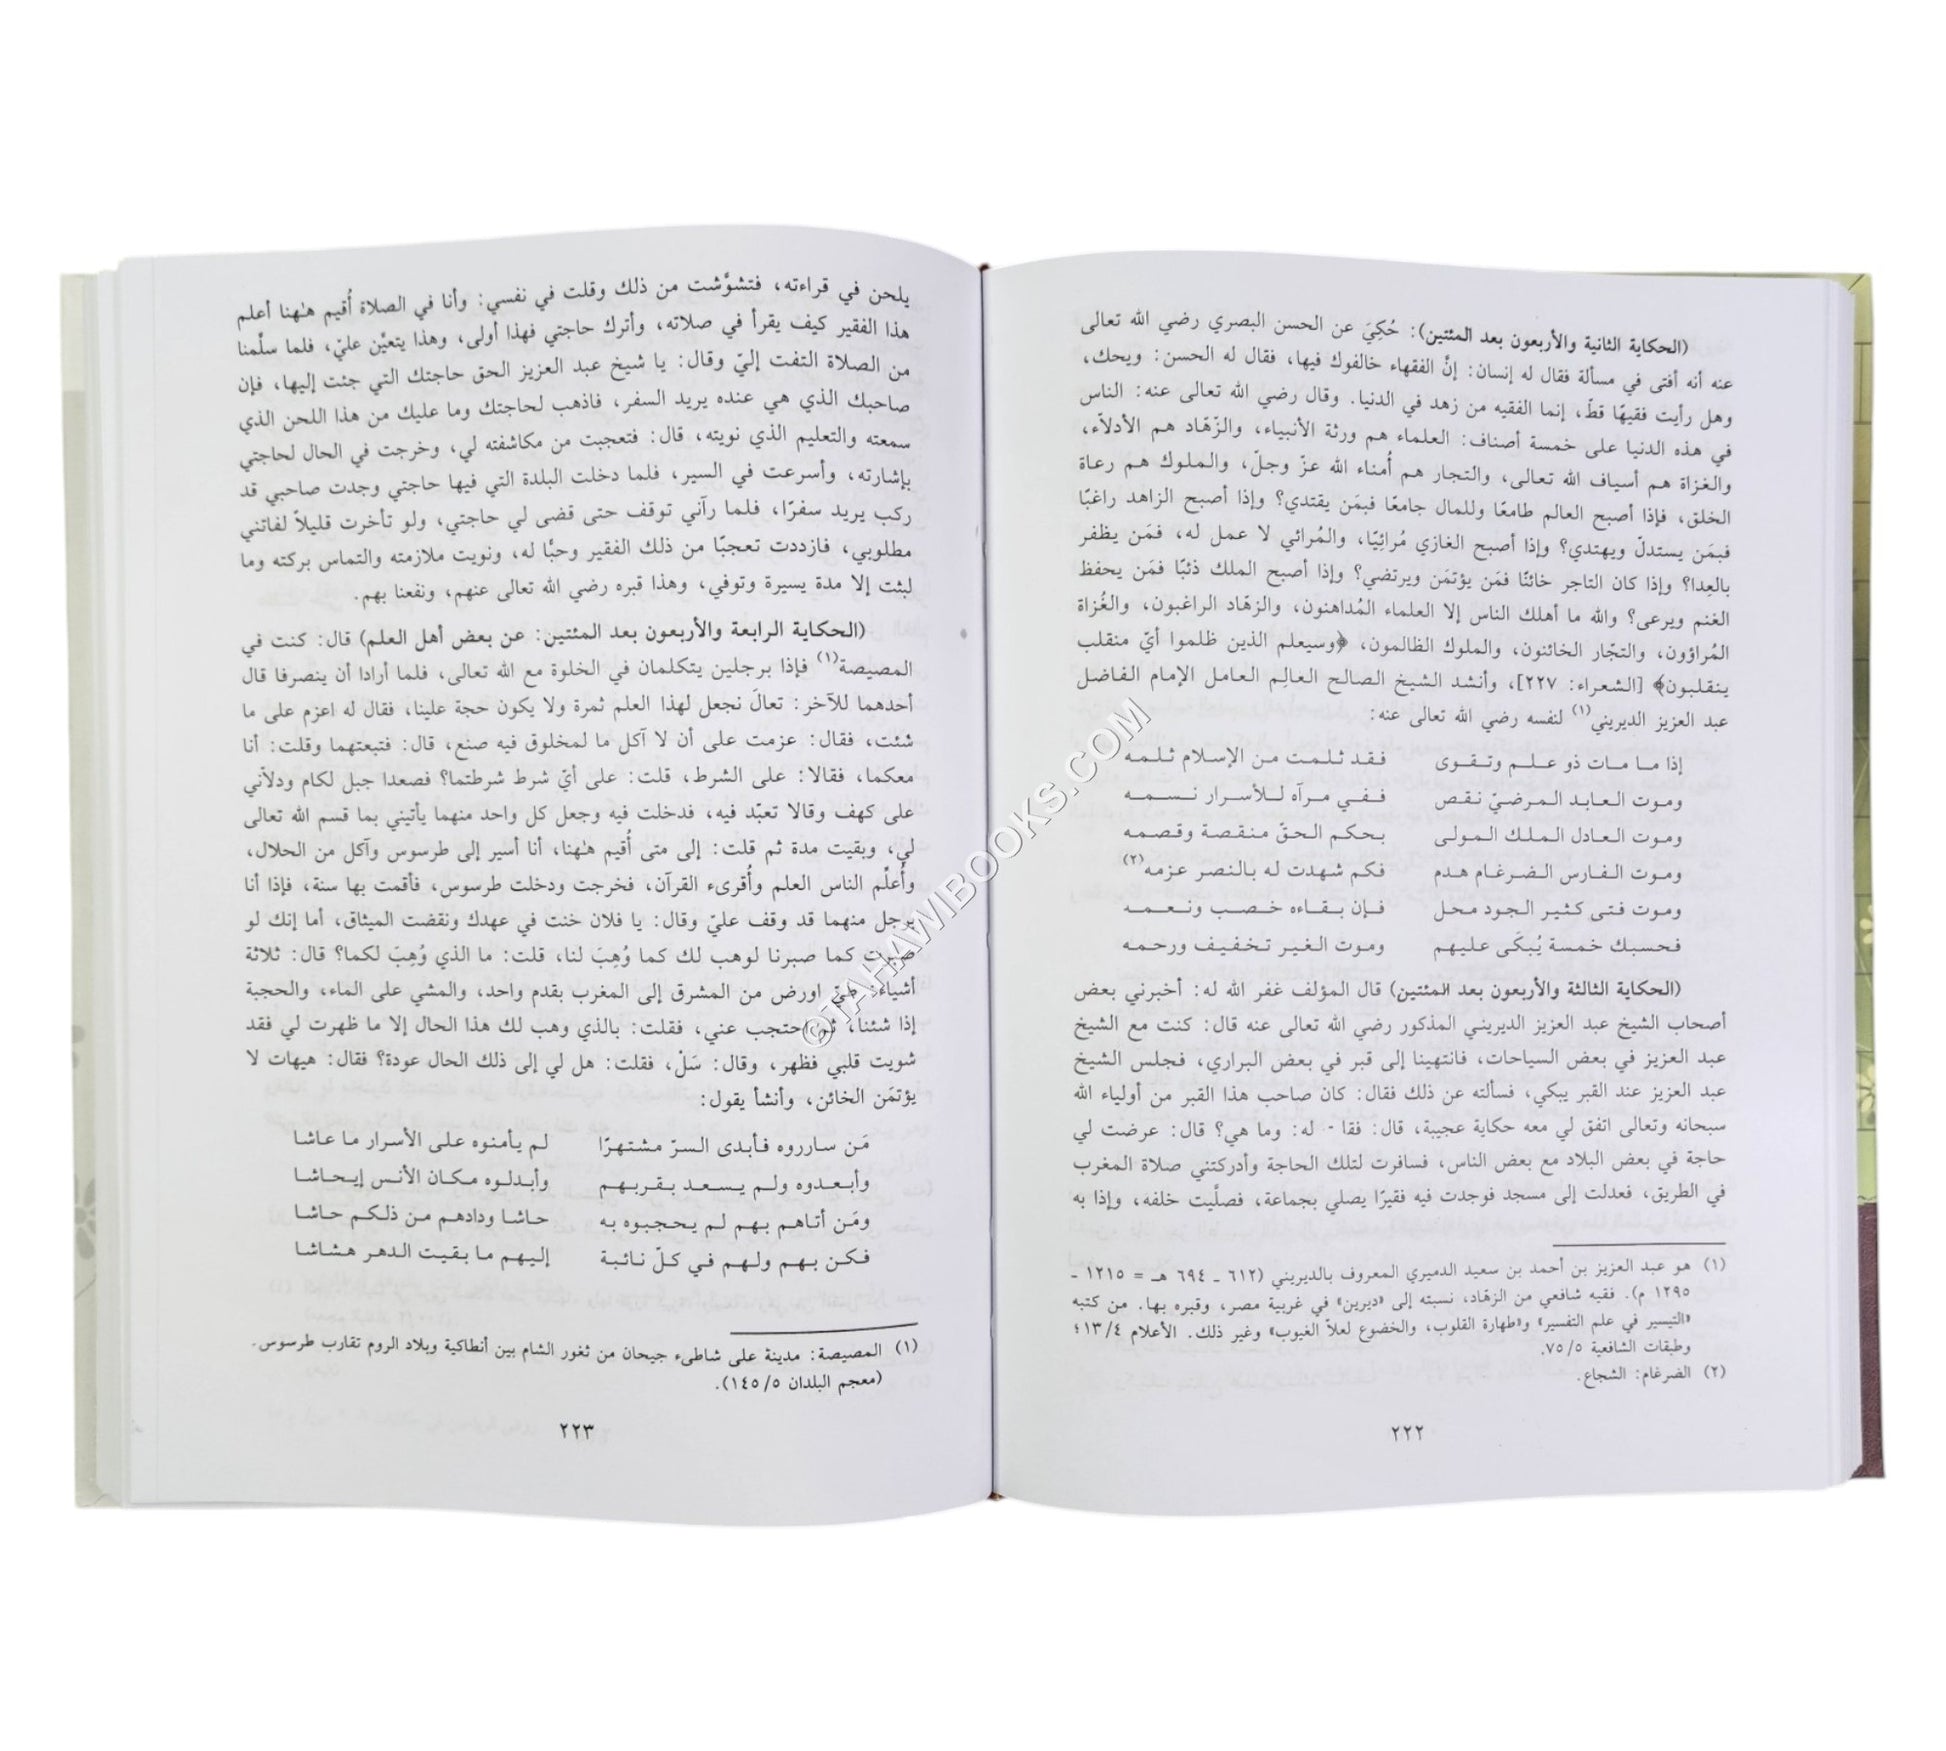 (الحكاية الثانية والأربعون بعد المئتين): حُكِيَ عن الحسن البصري رضي الله تعالى
عنه أنه أفتى في مسألة فقال له إنسان: إنَّ الفقهاء خالفوك فيها، فقال له الحسن: ويحك،
وهل رأيت فقيهًا قطّ، إنما الفقيه من زهد في الدنيا. وقال رضي الله تعالى عنه: الناس
في هذه الدنيا على خمسة أصناف: العلماء هم ورثة الأنبياء، والزّهّاد هم الأدلاّء،
والغزاة هم أسياف الله تعالى، والتجار هم أُمناء الله عزّ وجلّ، والملوك هم رعاة
الخلق، فإذا أصبح العالم طامعًا وللمال جامعًا فبمَن يقتدي؟ وإذا أصبح الزاهد راغبًا
فبمَن يستدلّ ويهتدي؟ وإذا أصبح الغازي مُرائِيًا، والمُرائي لا عمل له، فمَن يظفر
بالعِدا؟ وإذا كان التاجر خائنًا فمَن يؤتمَن ويرتضي؟ وإذا أصبح الملك ذئبًا فمَن يحفظ
الغنم ويرعى؟ والله ما أهلك الناس إلا العلماء المُداهنون، والزهّاد الراغبون، والغُزاة
المُراؤون، والتجّار الخائنون، والملوك الظالمون، ﴿وسيعلم الذين ظلموا أيّ منقلب
ينقلبون﴾ [الشعراء: ٢٢٧]، وأنشد الشيخ الصالح العالِم العامل الإمام الفاضل
عبد العزيز الديريني(١) لنفسه رضي الله تعالى عنه:
إذا ما مات ذو علم وتقوى فقد ثلمت من الإسلام ثلمه
وموت العابد المرضيّ نقص ففي مرآه للأسرار نسمه
وموت العادل الملك المولى بحكم الحقّ منقصة وقصمه
وموت الفارس الضرغام هدم فكم شهدت له بالنصر عزمه(٢)
وموت فتى كثير الجود محل فإن بقاءه خصب ونعمه
فحسبك خمسة يُبكَى عليهم وموت الغير تخفيف ورحمه
(الحكاية الثالثة والأربعون بعد المئتين) قال المؤلف غفر الله له: أخبرني بعض
أصحاب الشيخ عبد العزيز الديريني المذكور رضي الله تعالى عنه قال: كنت مع الشيخ
عبد العزيز في بعض السياحات، فانتهينا إلى قبر في بعض البراري، فجلس الشيخ
عبد العزيز عند القبر يبكي، فسألته عن ذلك فقال: كان صاحب هذا القبر من أولياء الله
سبحانه وتعالى اتفق لي معه حكاية عجيبة، قال: فقا - له: وما هي؟ قال: عرضت لي
حاجة في بعض البلاد مع بعض الناس، فسافرت لتلك الحاجة وأدركتني صلاة المغرب
في الطريق، فعدلت إلى مسجد فوجدت فيه فقيرًا يصلي بجماعة، فصلّيت خلفه، وإذا به
(١) هو عبد العزيز بن أحمد بن سعيد الدميري المعروف بالديريني (٦١٢ ـ ٦٩٤ هـ = ١٢١٥ ـ
١٢٩٥ م). فقيه شافعي من الزهّاد، نسبته إلى «ديرين» في غربية مصر، وقبره بها. من كتبه
«التيسير في علم التفسير» و«طهارة القلوب، والخضوع لعلاّ الغيوب» وغير ذلك. الأعلام ١٣/٤؛
وطبقات الشافعية ٧٥/٥.
(٢) الضرغام: الشجاع.
٢٢٢
يلحن في قراءته، فتشوَّشت من ذلك وقلت في نفسي: وأنا في الصلاة أُقيم هٰهنا أعلم
هذا الفقير كيف يقرأ في صلاته، وأترك حاجتي فهذا أولى، وهذا يتعيْن عليّ، فلما سلَّمنا
من الصلاة التفت إليّ وقال: يا شيخ عبد العزيز الحق حاجتك التي جئت إليها، فإن
صاحبك الذي هي عنده يريد السفر، فاذهب لحاجتك وما عليك من هذا اللحن الذي
سمعته والتعليم الذي نويته، قال: فتعجبت من مكاشفته لي، وخرجت في الحال لحاجتي
بإشارته، وأسرعت في السير، فلما دخلت البلدة التي فيها حاجتي وجدت صاحبي قد
ركب يريد سفرًا، فلما رآني توقف حتى قضى لي حاجتي، ولو تأخرت قليلاً لفاتني
مطلوبي، فازددت تعجبًا من ذلك الفقير وحبًّا له، ونويت ملازمته والتماس بركته وما
لبثت إلا مدة يسيرة وتوفي، وهذا قبره رضي الله تعالى عنهم، ونفعنا بهم.
(الحكاية الرابعة والأربعون بعد المئتين: عن بعض أهل العلم) قال: كنت في
المصيصة(١) فإذا برجلين يتكلمان في الخلوة مع الله تعالى، فلما أرادا أن ينصرفا قال
أحدهما للآخر: تعالَ نجعل لهذا العلم ثمرة ولا يكون حجة علينا، فقال له اعزم على ما
شئت، فقال: عزمت على أن لا آكل ما لمخلوق فيه صنع، قال: فتبعتهما وقلت: أنا
معكما، فقالا: على الشرط، قلت: على أيّ شرط شرطتما؟ فصعدا جبل لكام ودلاّني
على كهف وقالا تعبّد فيه، فدخلت فيه وجعل كل واحد منهما يأتيني بما قسم الله تعالى
لي، وبقيت مدة ثم قلت: إلى متى أُقيم هٰهنا، أنا أسير إلى طرسوس وآكل من الحلال،
وأُعلِّم الناس العلم وأُقرىء القرآن، فخرجت ودخلت طرسوس، فأقمت بها سنة، فإذا أنا
برجل منهما قد وقف عليّ وقال: يا فلان خنت في عهدك ونقضت الميثاق، أما إنك لو
صبرت كما صبرنا لوهب لك كما وُهِبَ لنا، قلت: ما الذي وُهِبَ لكما؟ قال: ثلاثة
أشياء: طيّ اورض من المشرق إلى المغرب بقدم واحد، والمشي على الماء، والحجبة
إذا شئنا، ثم احتجب عني، فقلت: بالذي وهب لك هذا الحال إلا ما ظهرت لي فقد
شويت قلبي فظهر، وقال: سَلْ، فقلت: هل لي إلى ذلك الحال عودة؟ فقال: هيهات لا
يؤتمَن الخائن، وأنشأ يقول:
مَن سارروه فأبدى السرّ مشتهرًا لم يأمنوه على الأسرار ما عاشا
وأبعدوه ولم يسعد بقربهم وأبدلوه مكان الأنس إيحاشا
ومَن أتاهم بهم لم يحجبوه به حاشا ودادهم من ذلكم حاشا
فكن بهم ولهم في كلّ نائبة إليهم ما بقيت الدهر هشاشا
(١) المصيصة: مدينة على شاطىء جيحان من ثغور الشام بين أنطاكية وبلاد الروم تقارب طرسوس.
(معجم البلدان ١٤٥/٥).
٢٢٣
©TAHAWIBOOKS.COM